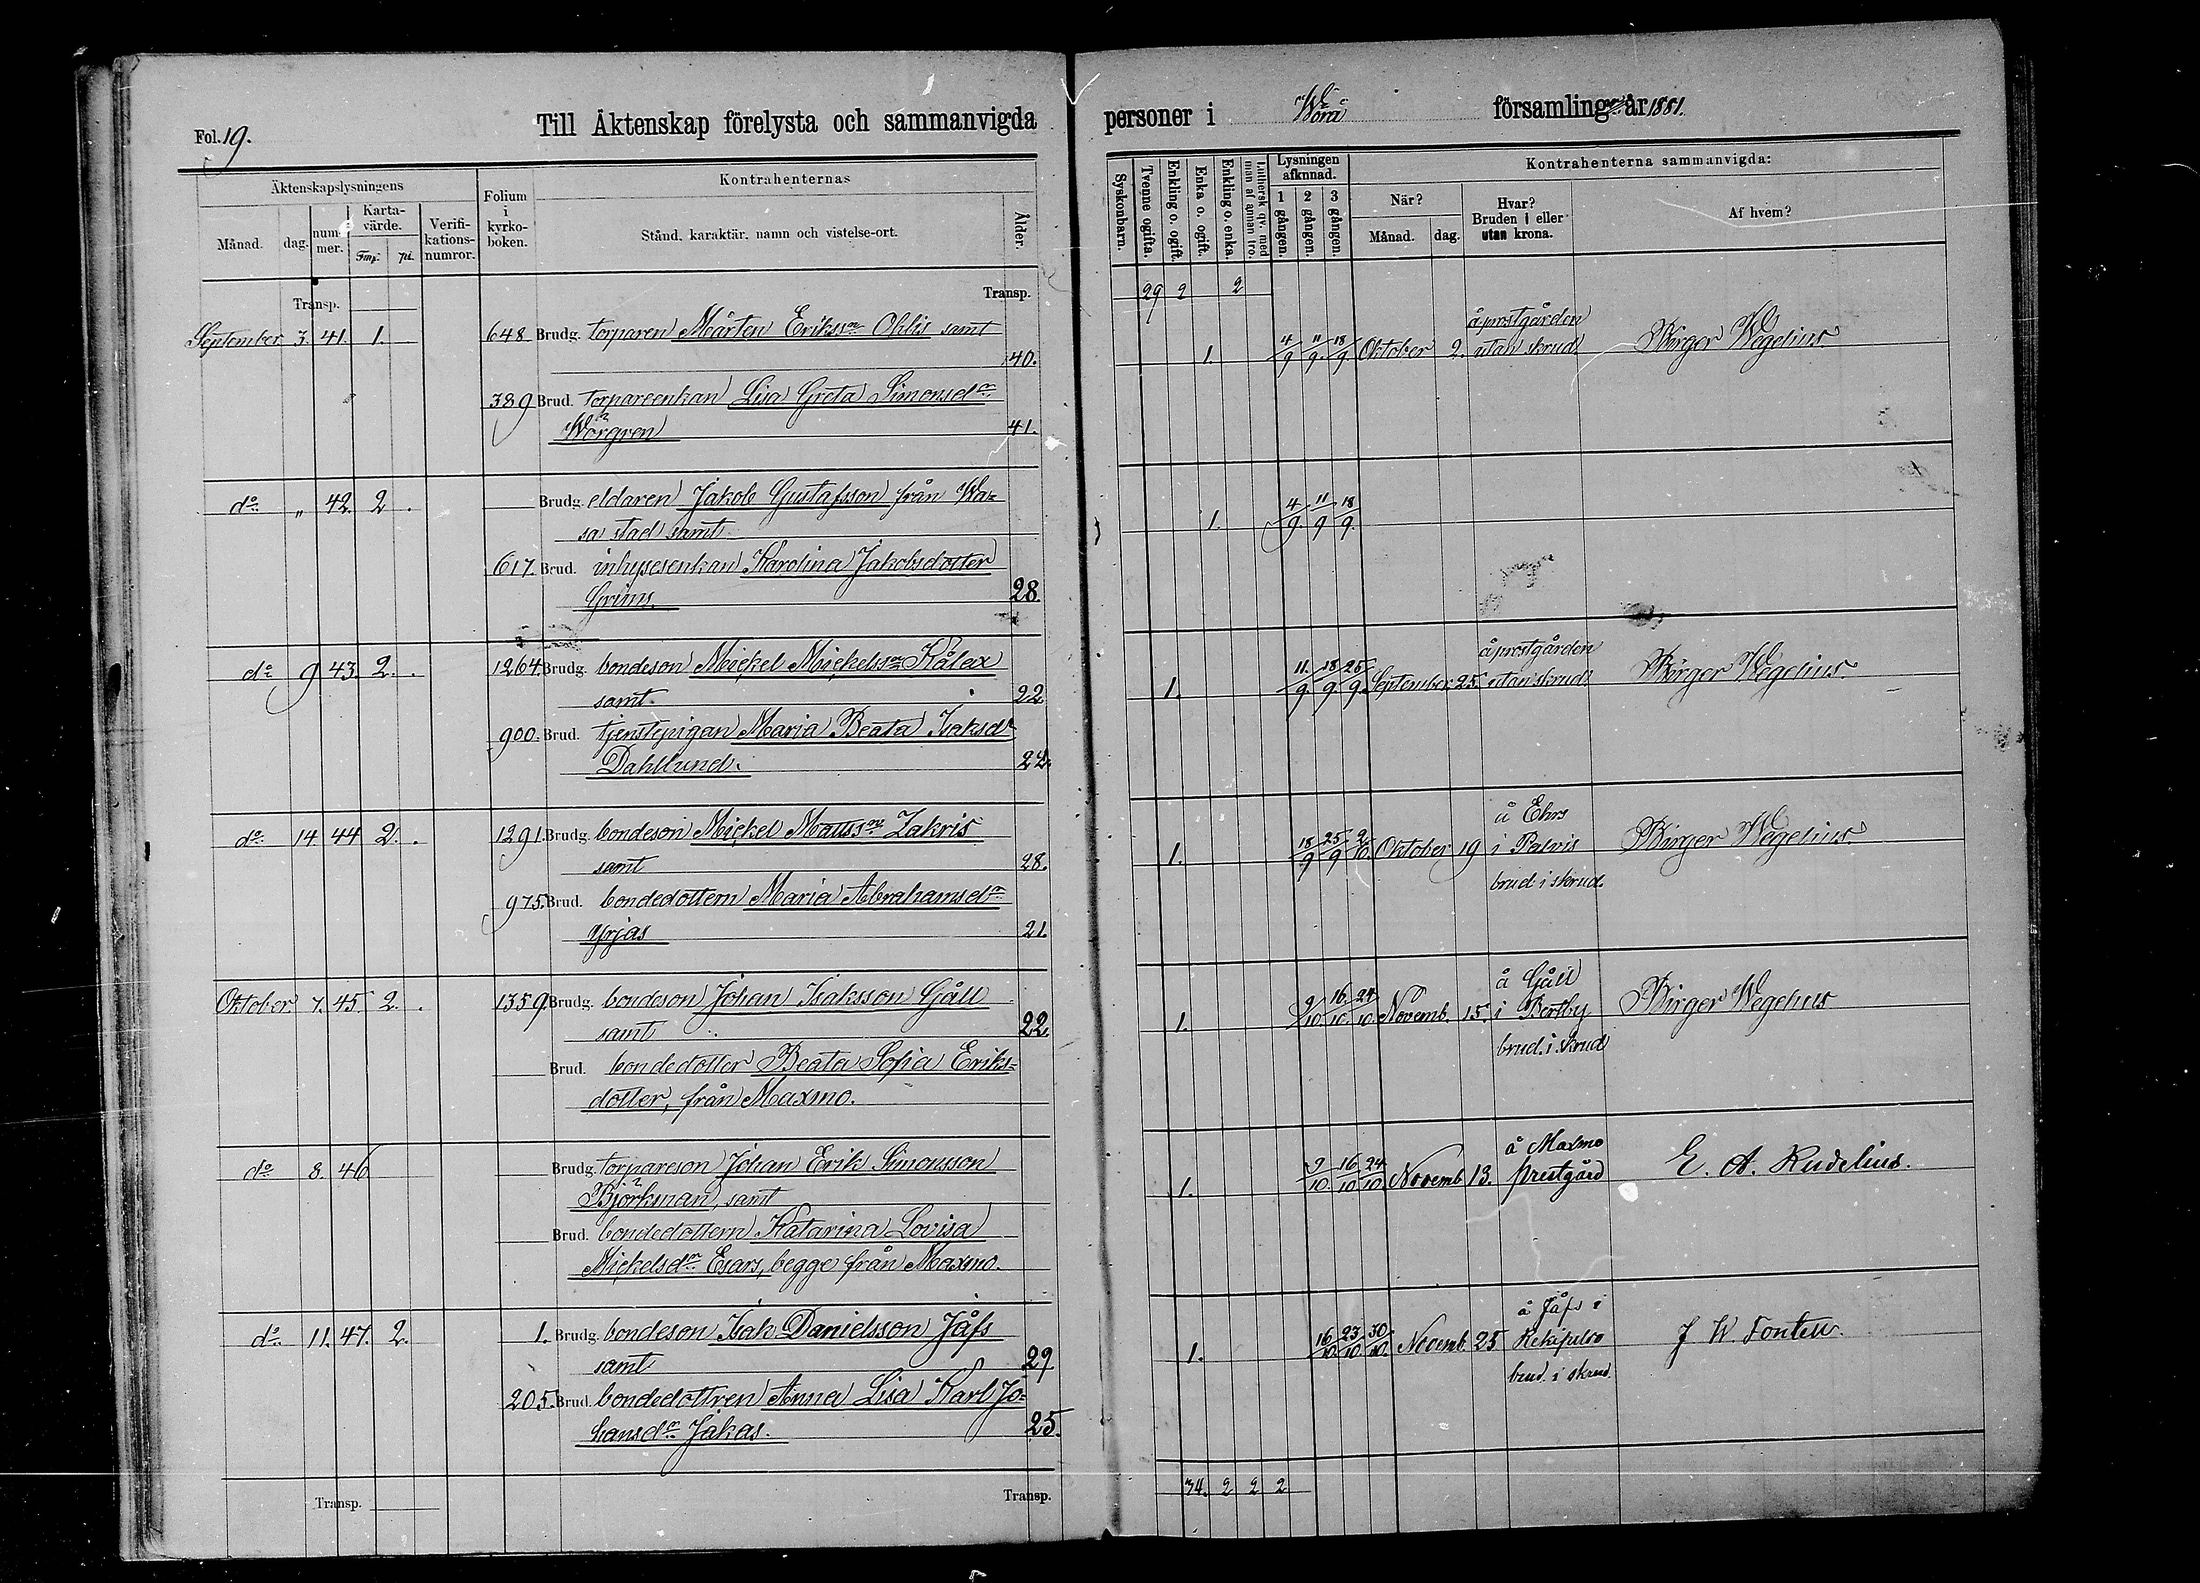 Fol. 19.
Till Äktenskap förelysta och sammanvigda personer i Wörå församling år 1881.
Äktenskapslysningens
Månad.
dag.
num-
mer.
Karta-
värde.
Fmk
pi.
Verifi-
kations-
numror.
Folium
i
kyrko-
boken.
Kontrahenternas
Stånd, karaktär, namn och vistelse-ort.
Ålder.
Syskonbarn.
Tvenne ogifta.
Enkling o. ogift.
Enka o. ogift.
Enkling o. enka.
Luthersk qv. med
man af annan tro.
Lysningen
afkunnad.
1 gången.
2 gången.
3 gången.
Kontrahenterna sammanvigda:
När?
Månad.
dag.
Hvar?
Bruden i eller
utan krona.
Af hvem?
Transp.
Transp.
29 2 2
September 3. 41. 1. 648 Brudg. torparen Mårten Erikssn Ohlis samt
40.
1. 4/9 11/9. 18/9. Oktober 2. å prostgården
utan skrud. Birger Wegelius
389 Brud. torpareenkan Lisa Greta Simonsdr
Wörgren
41.
do " 42. 2. Brudg. eldaren Jakob Gustafsson från Wa-
sa stad samt
1. 4/9. 11/9 18/9.
617. Brud. inhysesenkan Karolina Jakobsdotter
Grims.
28.
do 9 43. 2. 1264. Brudg. bondeson Mickel Mickelssn Kålax
samt.
22.
1. 11./9. 18/9. 25/9. September 25. å prostgården
utan skrud. Birger Wegelius
900. Brud. tjenstepigan Maria Beata Isaksdr
Dahllund.
24.
do 14. 44 2. 1291. Brudg. bondeson Mickel Manssn Zakris
samt
28.
1. 18/9 25/9 2/10. Oktober 19 å Ehrs
i Palvis
brud i skrud. Birger Wegelius
975. Brud. bondedottern Maria Abrahamsdr
Yrjas
21.
Oktober. 7. 45 2. 1359. Brudg. bondeson Johan Isaksson Gåll
samt
22.
1. 9/10. 16/10. 24/10 Novemb. 15. å Gåll
i Bertby
brud. i skrud Birger Wegelius
Brud. bondedotter Beata Sofia Eriks-
dotter, från Maxmo.
do 8. 46 Brudg. torpareson Johan Erik Simonsson
Björkman, samt
1. 9/10. 16/10 24/10 Novemb. 13. å Maxmo
prestgård E. A. Rudelius.
Brud. bondedottern Katarina Lovisa
Mickelsdr Esars, begge från Maxmo.
do 11. 47. 2. 1. Brudg. bondeson Isak Danielsson Jåfs
samt
29
1. 16/10. 23/10 30/10. Novemb. 25 å Jåfs i
Rekipelto
brud. i skrud. J W Fontell.
205. Brud. bondedottren Anna Lisa Karl Jo-
hansdr Jakas.
25.
Transp.
Transp.
34. 2 2 2